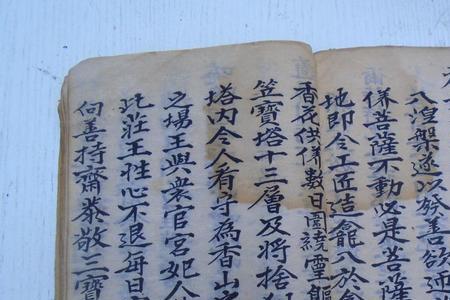 八湼槃遂以發善欲
併菩薩不動必是菩薩
地即令工匠造龕八於龕
香花供併數日圍繞靈軀
笠寶塔十三層及將捨
塔內令人看字為香山
之場王與衆官宮妃人
此莊王性心不退每日
向善持齋恭敬三寶